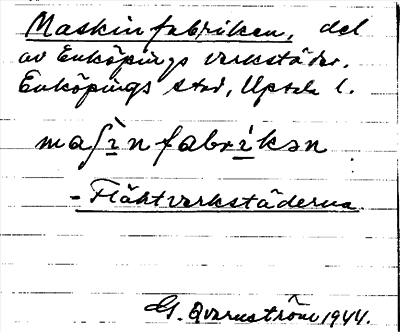 Maskinfabriken, del
av Enköpings verkstäder.
Enköpings stad, Upsala l.
maʃì̱nfabrí̱kən
- Fläktverkstäderna
G. Qvarnström 1944.